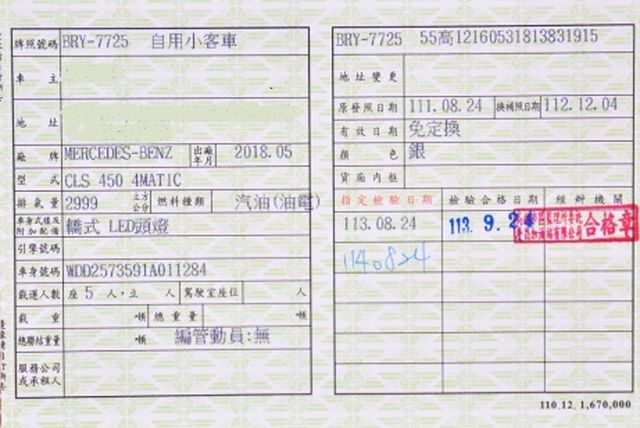 牌照號碼 BRY-7725 自用小客車
車主
地址
廠牌 MERCEDES-BENZ 出廠年月 2018.05
型式 CLS 450 4MATIC
排氣量 2999 立方公分 燃料種類 汽油(油電)
車身式樣及附加配備 轎式 LED頭燈
引擎號碼
車身號碼 WDD2573591A011284
載運人數 座 5 人．立 人 駕駛室座位 人
載重 噸 總重量 噸
總聯結重量 噸 編管動員:無
服務公司或承租人
BRY-7725 55高12160531813831915
地址變更
原發照日期 111.08.24 換補照日期 112.12.04
有效日期 免定換
顏色 銀
貨廂內框
指定檢驗日期 檢驗合格日期 經辦機關
113.08.24 113.9.24 合格章
1140824
110.12. 1,670,000